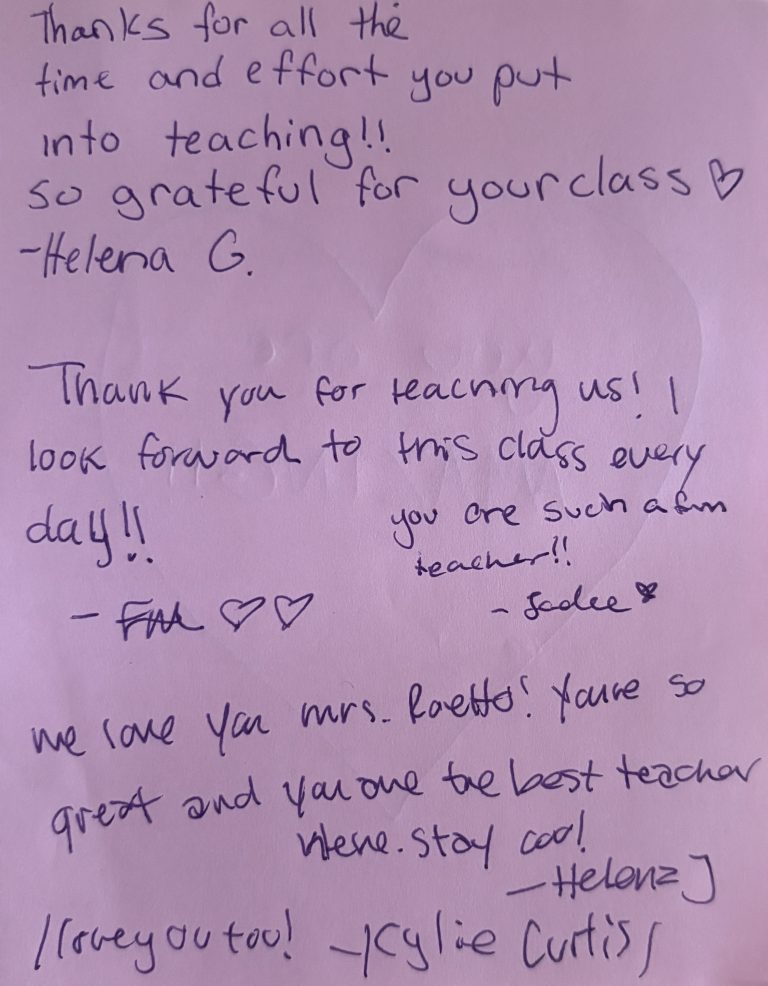 Thanks for all the
time and effort you put
into teaching!!
so grateful for your class ♡
-Helena G.
Thank you for teaching us! I
look forward to this class every
day!!
- ♡♡
you are such a fun
teacher!!
- Sadee
We love you mrs. Raetto! You're so
great and you are the best teacher
here. stay cool!
-Helena J
I love you too! -Kylie Curtis